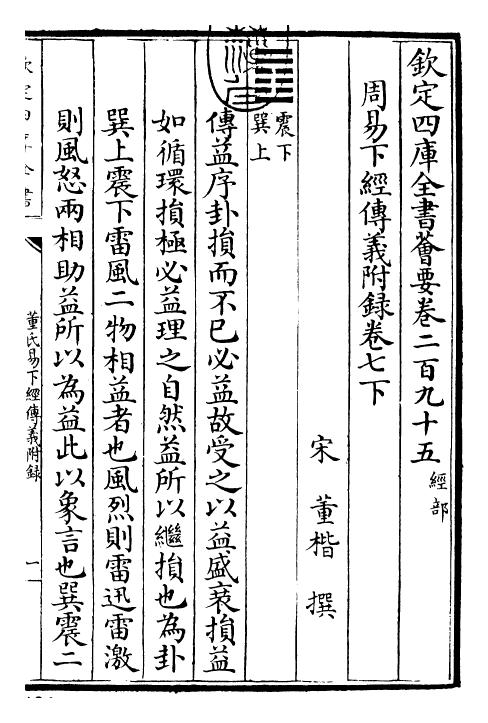 欽定四庫全書薈要卷二百九十五 經部
周易下經傳義附録卷七下
宋 董楷 撰
震下
巽上
傳益序卦損而不已必益故受之以益盛衰損益
如循環損極必益理之自然益所以繼損也為卦
巽上震下雷風二物相益者也風烈則雷迅雷激
則風怒兩相助益所以為益此以象言也巽震二
欽定四庫全書
董氏易下經傳義附録
一